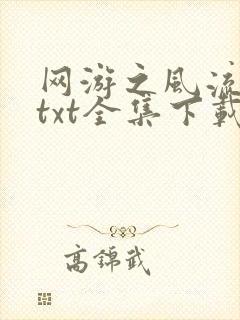 网游之风流
txt全集下载
高锦武